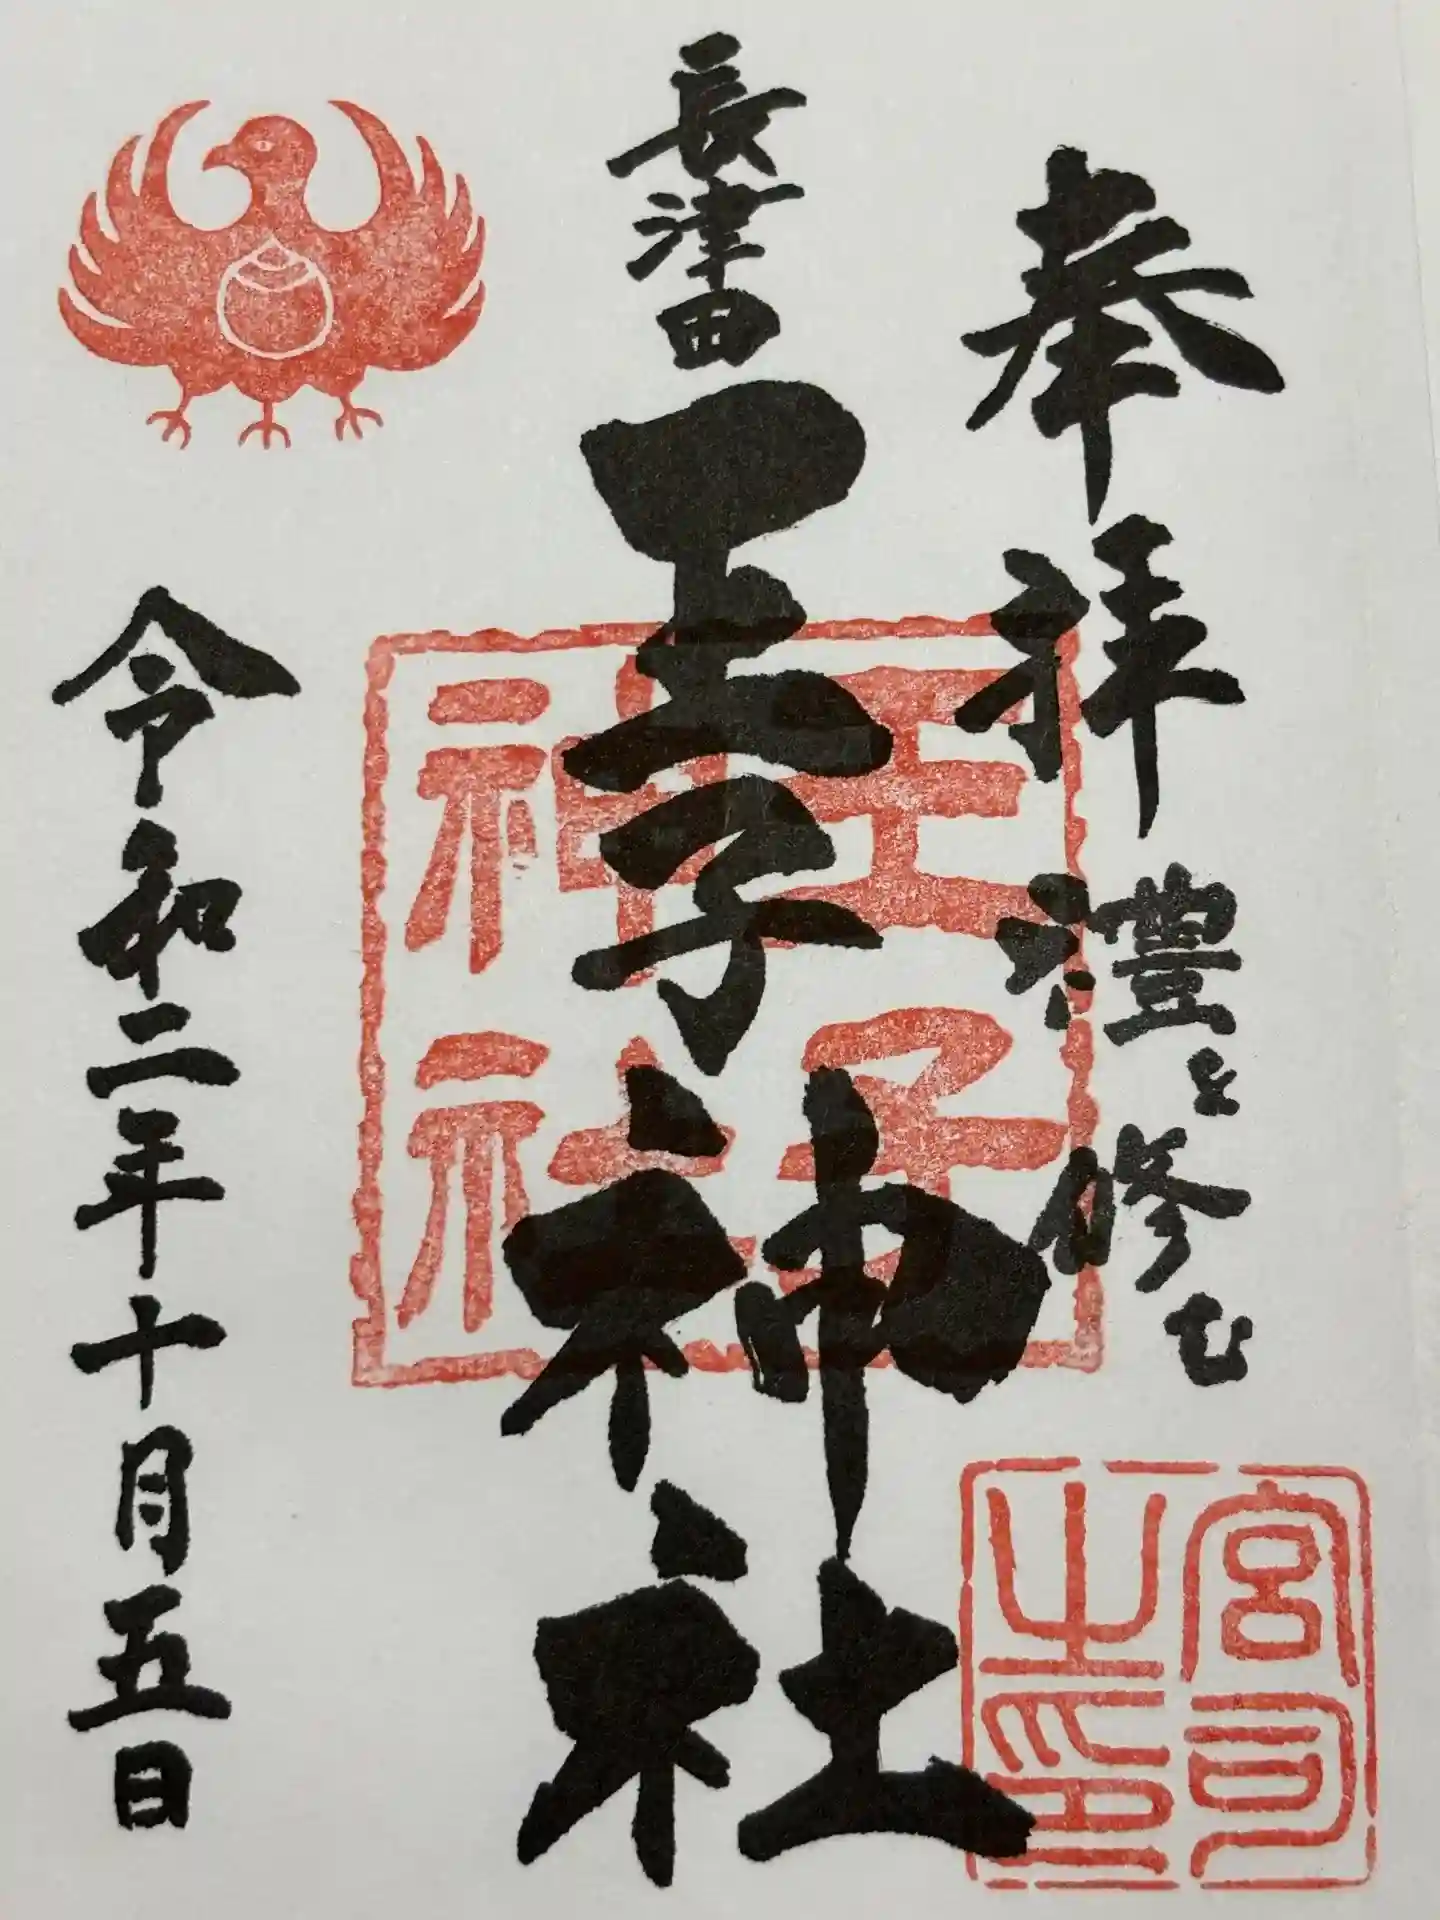 奉拝
禮を修む
長津田
王子神社
令和二年十月五日
王子
神社
宮司
之印